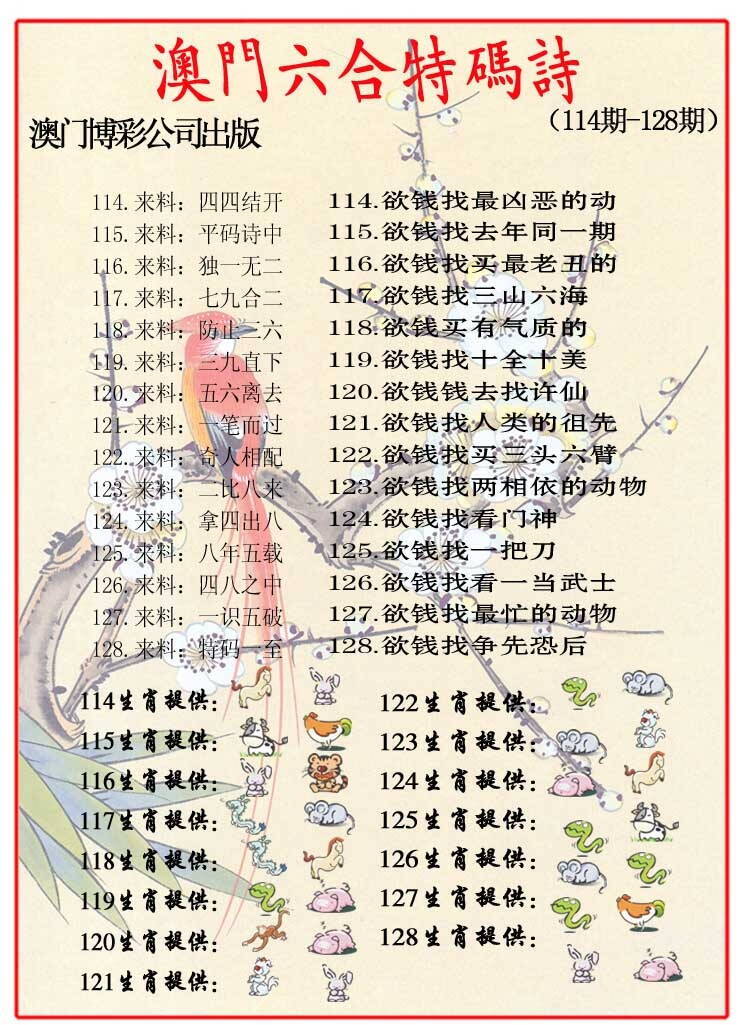 澳門六合特碼詩
澳门博彩公司出版
（114期-128期）
114.来料：四四结开 114.欲钱找最凶恶的动
115.来料：平码诗中 115.欲钱找去年同一期
116.来料：独一无二 116.欲钱找买最老丑的
117.来料：七九合二 117.欲钱找三山六海
118.来料：防止三六 118.欲钱买有气质的
119.来料：三九直下 119.欲钱找十全十美
120.来料：五六离去 120.欲钱钱去找许仙
121.来料：一笔而过 121.欲钱找人类的祖先
122.来料：奇人相配 122.欲钱找买三头六臂
123.来料：二比八来 123.欲钱找两相依的动物
124.来料：拿四出八 124.欲钱找看门神
125.来料：八年五载 125.欲钱找一把刀
126.来料：四八之中 126.欲钱找看一当武士
127.来料：一识五破 127.欲钱找最忙的动物
128.来料：特码一至 128.欲钱找争先恐后
114生肖提供：
115生肖提供：
116生肖提供：
117生肖提供：
118生肖提供：
119生肖提供：
120生肖提供：
121生肖提供：
122生肖提供：
123生肖提供：
124生肖提供：
125生肖提供：
126生肖提供：
127生肖提供：
128生肖提供：